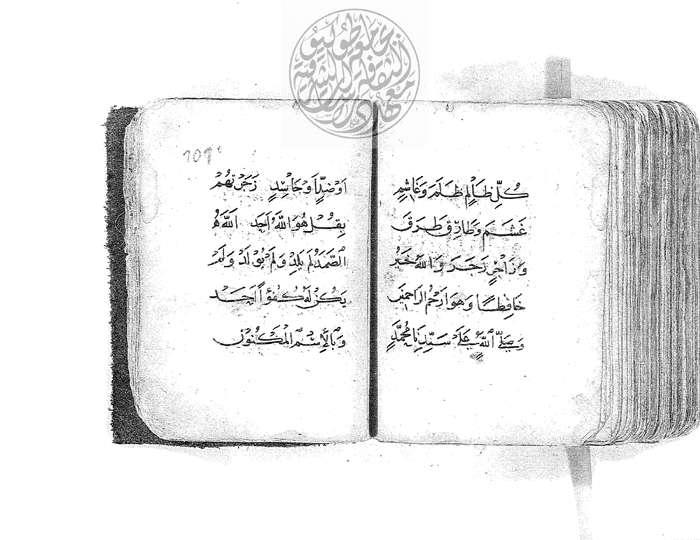 كُلِّ ظَالِمٍ ظَلَمَ وَغَاشِمٍ
غَشَمَ وَطَارِقٍ طَرَقَ
وَزَاجِرٍ زَجَرَ وَاللهُ خَيْرٌ
حَافِظًا وَهُوَ ارْحَمُ الرَّاحِمِينَ
وَصَلَّى اللهُ عَلَى سَيِّدِنَا مُحَمَّدٍ
109
اَوْضِدٍّ اَوْحَاسِدٍ زَجَرْتُهُمْ
بِقُلْ هُوَ اللهُ اَحَد اَللهُ
الصَّمَدُ لَمْ يَلِدْ وَلَمْ يُولَدْ وَلَمْ
يَكُنْ لَهُ كُفُوًا اَحَد
وَبِالْاِسْمِ الْمَكْنُونْ